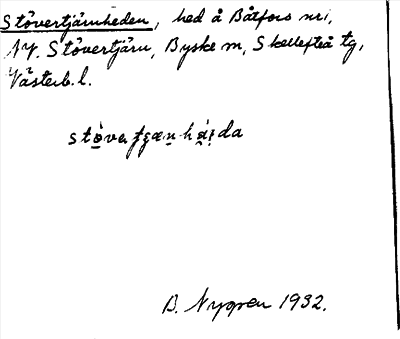 Stövertjärnheden, hed å Båtfors nr 1,
NV. Stövertjärn, Byske sn, Skellefteå tg,
Västerb. l.
B. Nygren 1932.